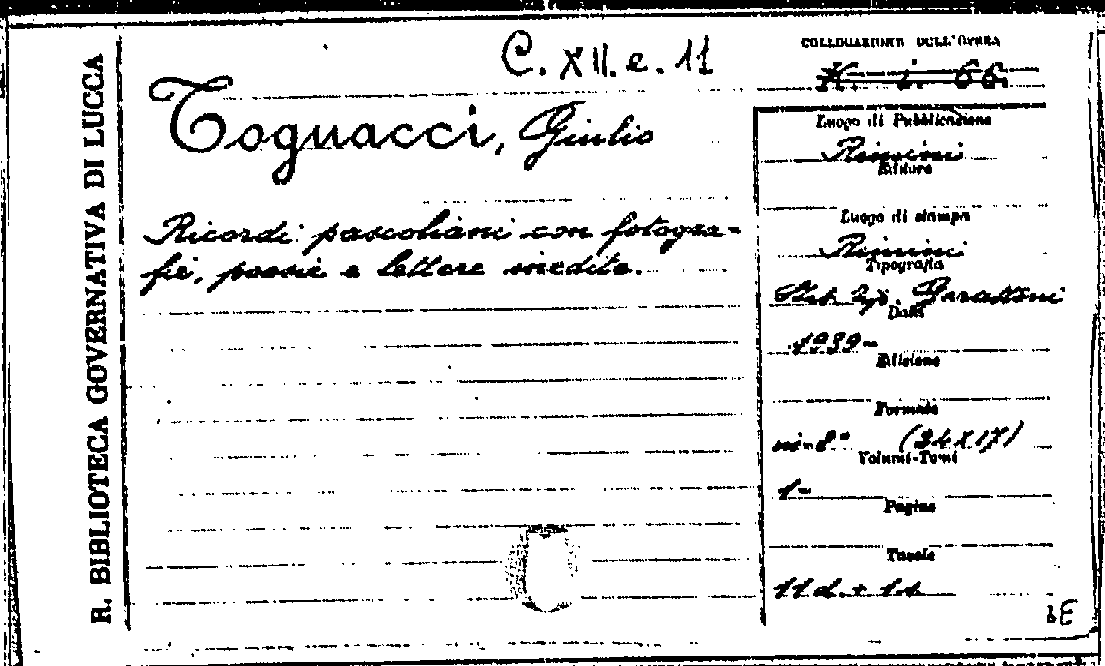 R. BIBLIOTECA GOVERNATIVA DI LUCCA
C. XII. e. 11
COLLOCAZIONE DELL'OPERA
X. i. 66.
Tognacci, Giulio
Ricordi pascoliani con fotogra-
fie, poesie e lettere inedite.
Luogo di Pubblicazione
Rimini
Editore
Luogo di stampa
Rimini
Tipografia
Stab. Tip. Garattoni
Data
1939-
Edizione
Formato
in-8° (24X17)
Volumi-Tomi
1-
Pagine
Tavole
bE